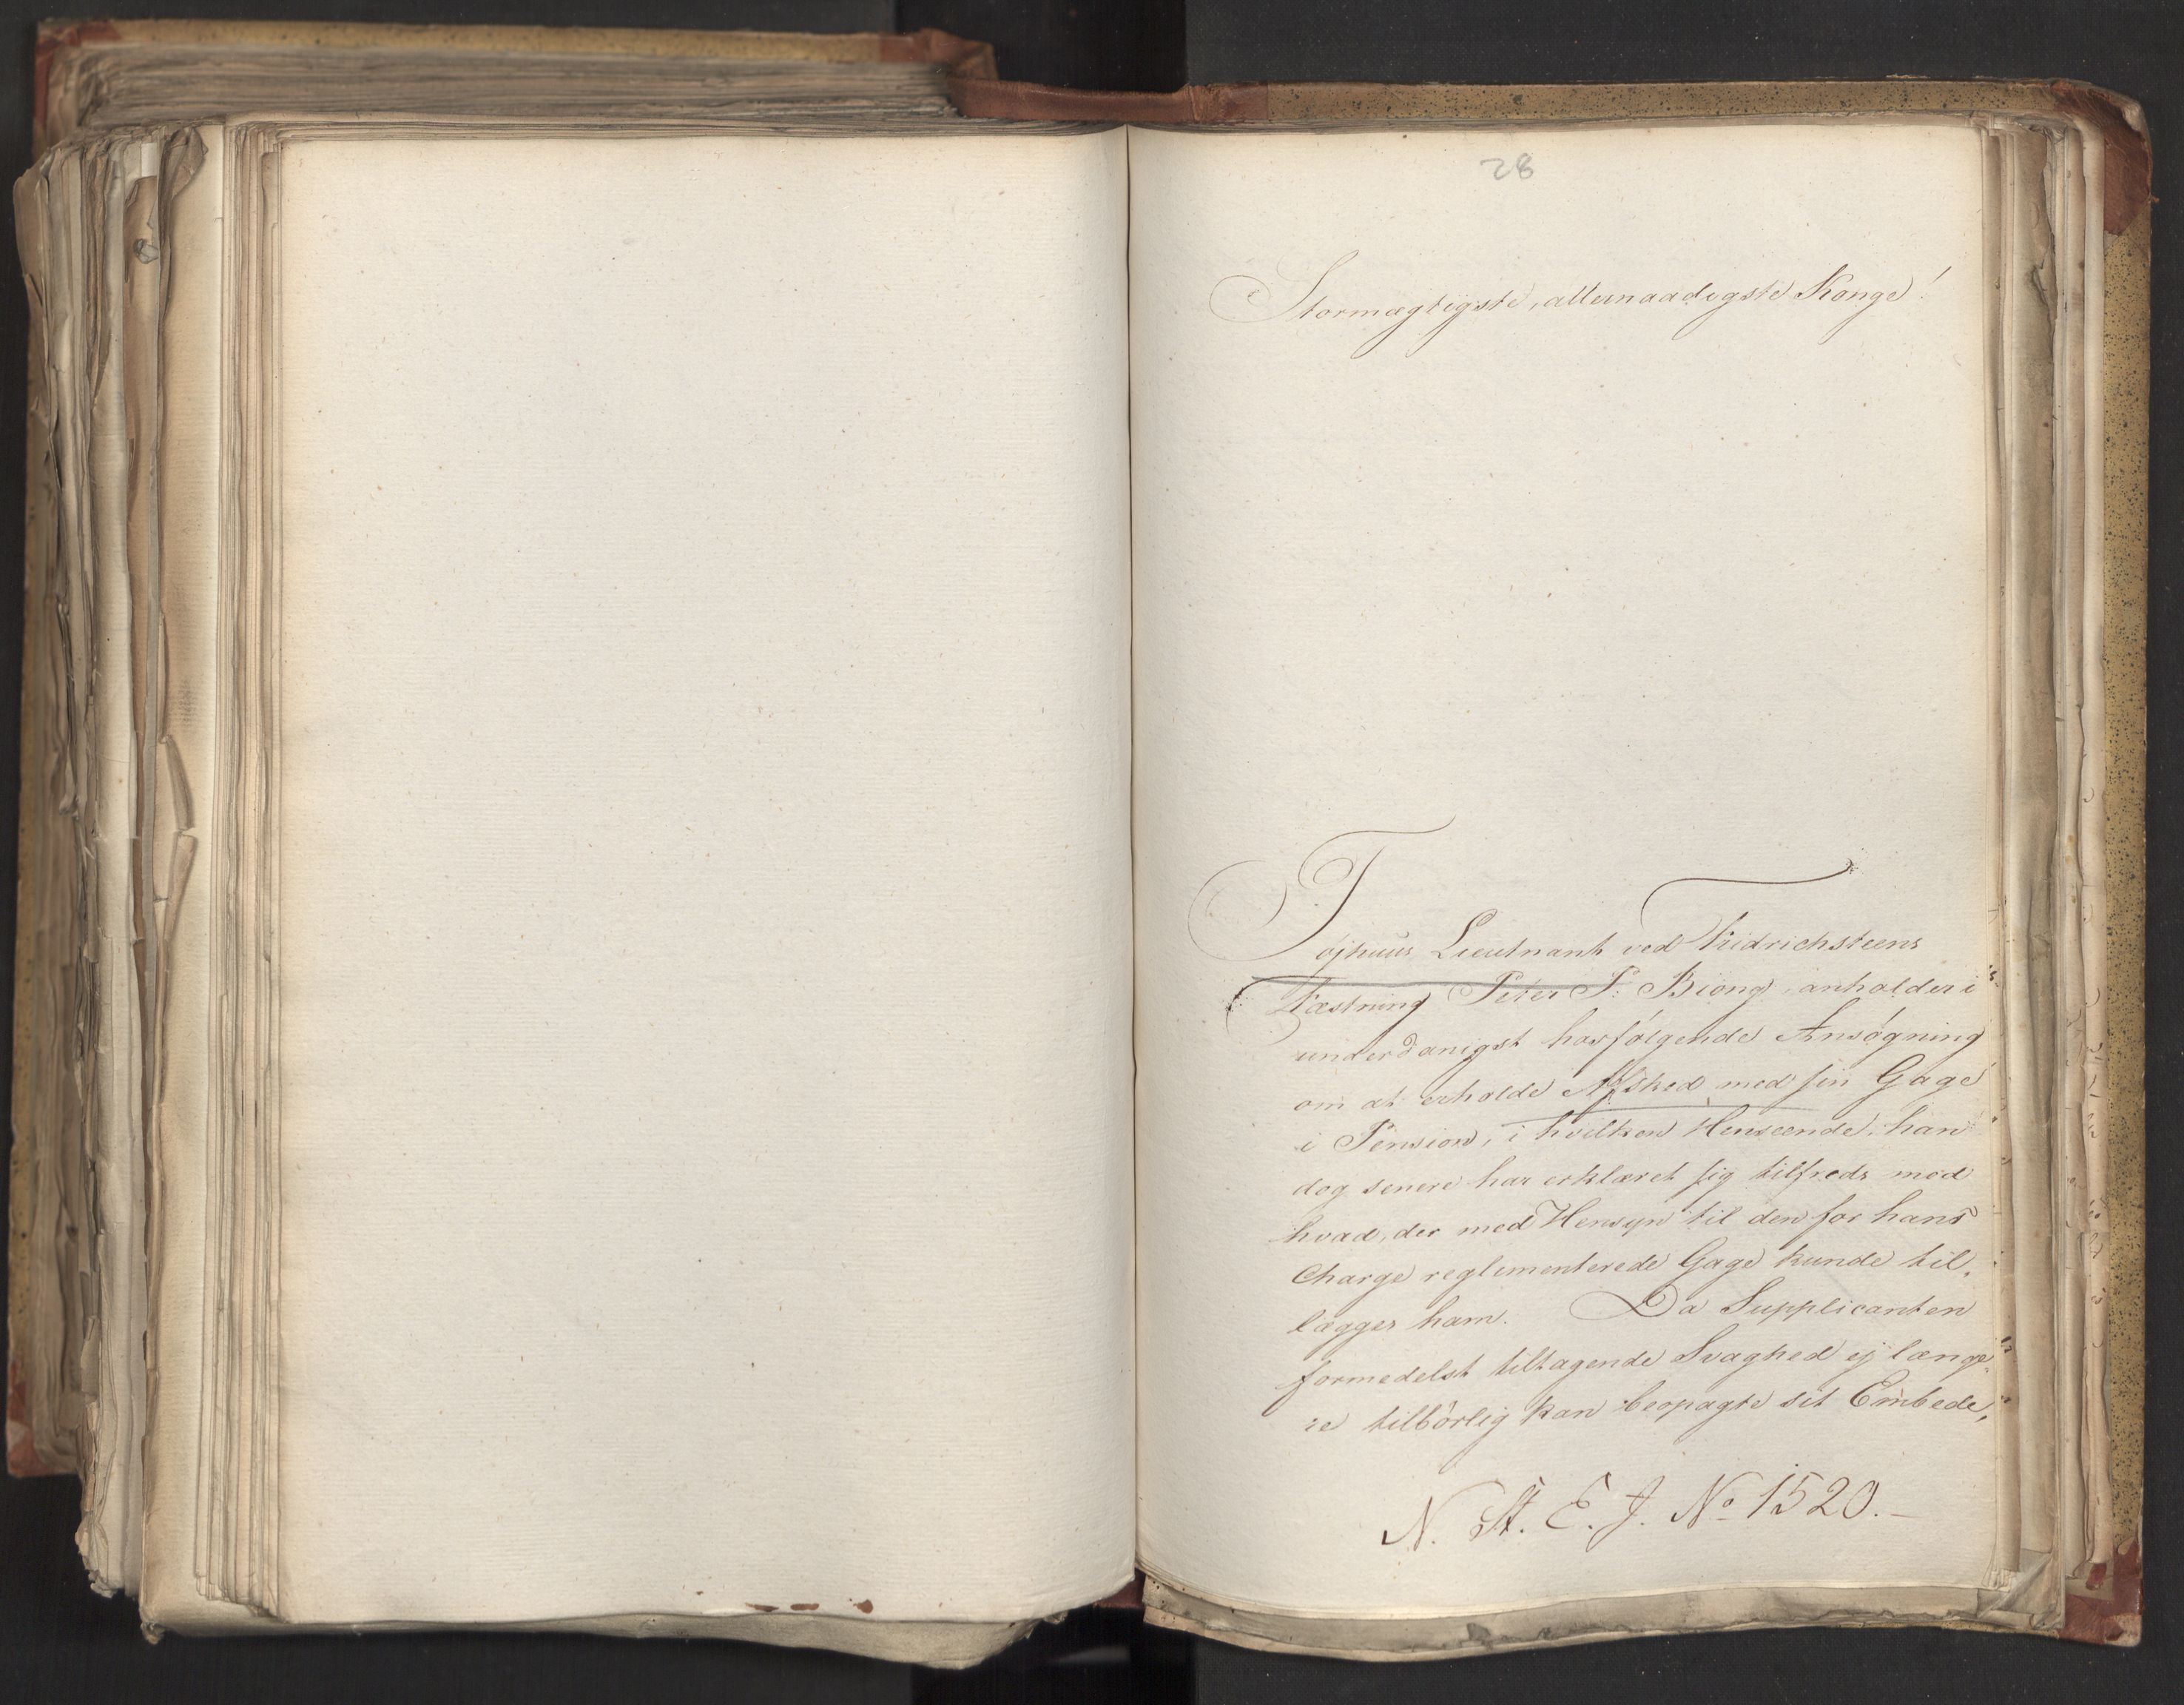 28
Stormægtigste, allernaadigste Konge!
Tøjhuus Lieutnant ved Fridrichsteens
Fæstning Peter P. Biong anholder i
underdanigst hosfølgende Ansøgning
om at erholde Afsked med sin Gage
i Pension, i hvilken Henseende, han
dog senere har erklæret sig tilfreds med
hvad, der med Hensyn til den for hans
Charge reglementerede Gage kunde til,
lægges ham. Da Supplicanten
formedelst tiltagende Svaghed ej længe,
re tilbørlig kan beopagte sit Embede,
N. St. E. J. No 1520.-